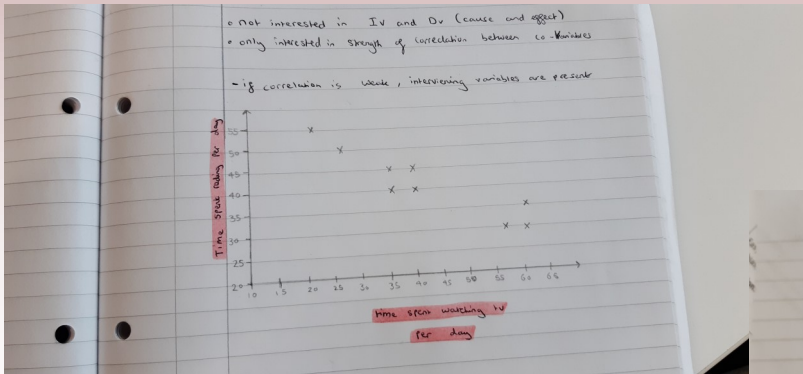 • not interested in IV and DV (cause and effect)
• only interested in strength of correlation between co-Variables
- if correlation is weak, interviening variables are present
Time spent eating per day
55
50
45
40
35
30
25
20
10 15 20 25 30 35 40 45 50 55 60 65
time spent watching tv
per day